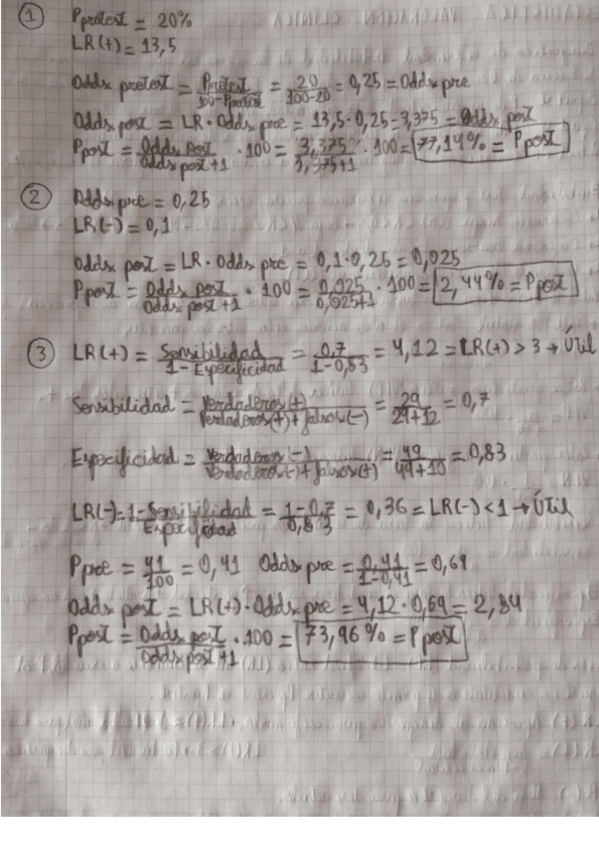 ① Ppretest = 20%
LR(+) = 13,5
Odds pretest = Pretest / 100-Ppretest = 20 / 100-20 = 0,25 = Odds pre
Odds post = LR · Odds pre = 13,5 · 0,25 = 3,375 = Odds post
Ppost = Odds post / Odds post + 1 · 100 = 3,375 / 3,375+1 · 100 = 77,14% = Ppost
② Odds pre = 0,25
LR(-) = 0,1
Odds post = LR · Odds pre = 0,1 · 0,25 = 0,025
Ppost = Odds post / Odds post + 1 · 100 = 0,025 / 0,025+1 · 100 = 2,44% = Ppost
③ LR(+) = Sensibilidad / 1 - Especificidad = 0,7 / 1-0,83 = 4,12 = LR(+) > 3 → Útil
Sensibilidad = Verdaderos(+) / Verdaderos(+) + falsos(-) = 29 / 29+12 = 0,7
Especificidad = Verdaderos(-) / Verdaderos(-) + falsos(+) = 49 / 49+10 = 0,83
LR(-) = 1 - Sensibilidad / Especificidad = 1-0,7 / 0,83 = 0,36 = LR(-) < 1 → Útil
Ppre = 41 / 100 = 0,41 Odds pre = 0,41 / 1-0,41 = 0,69
Odds post = LR(+) · Odds pre = 4,12 · 0,69 = 2,84
Ppost = Odds post / Odds post + 1 · 100 = 73,96% = Ppost